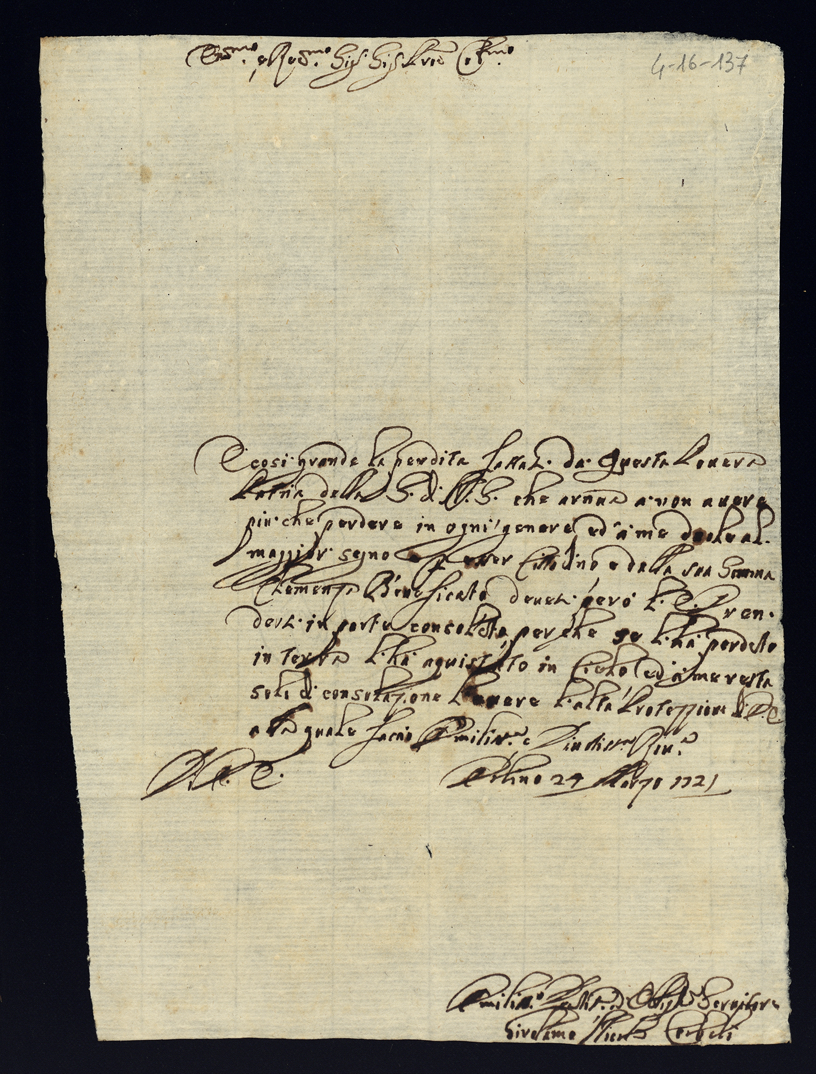 Em.mo e Rev.mo Sig. Sig. Pron. Col.mo
4-16-137
È così grande la perdita fattasi da questa povera
Patria della S. di N. S. che arriva a non avere
più che perdere in ogni genere, ed a me duole al
maggior segno per esser Cittadino e dalla sua Somma
Clemenza Beneficato deve però l'E. V. ren-
dersi in parte consolata, perche se l'ha perduto
in terra l'ha aquistato in Cielo ed a me resta
solo di consolazione l'avere l'alta Protezzione di V. E.
alla quale faccio Umiliss.a e Riv.a
D. V. E.
Urbino 29 Marzo 1721
Umiliss.o Devotiss.o Oblig.mo Servitore
Girolamo